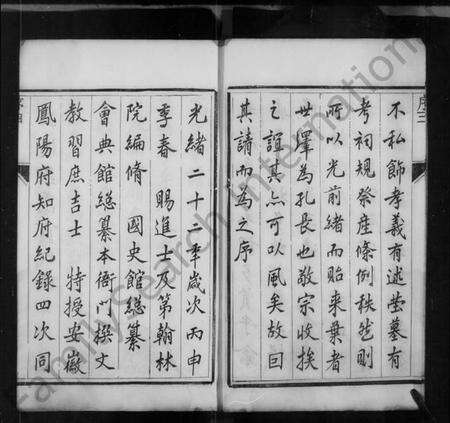 不私飾孝義有述塋墓有
考祠規祭產條例秩然則
所以光前緒而貽來葉者
世澤為孔長也敬宗收族
之誼其亦可以風矣故因
其請而為之序
光緒二十二年歲次丙申
季春 賜進士及第翰林
院編脩 國史館總纂
會典館總纂本衙門撰文
教習庶吉士 特授安徽
鳳陽府知府紀錄四次同
FamilySearch International